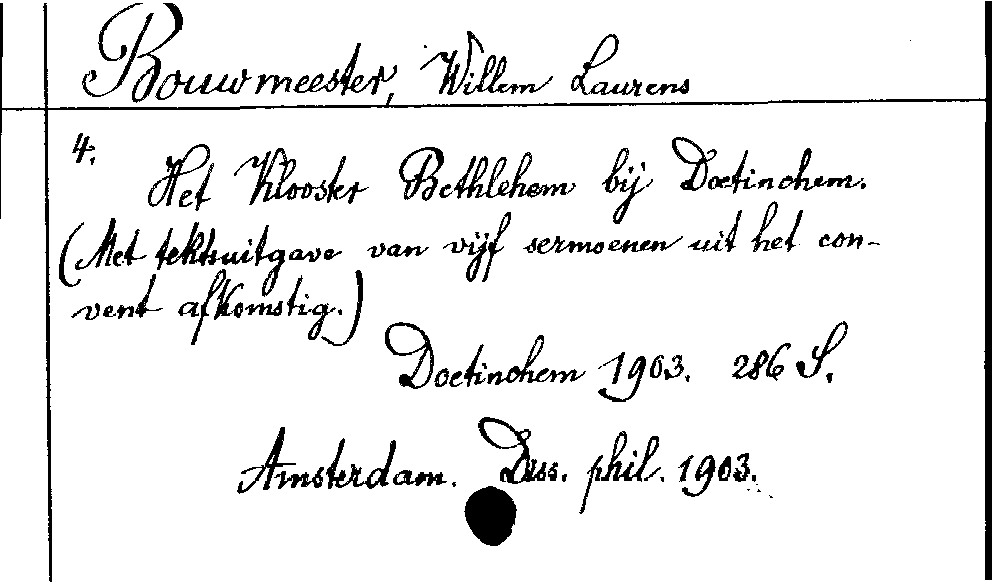 Bouwmeester, Willem Laurens
4.
Het Klooster Bethlehem bij Doetinchem.
(Met tekstuitgave van vijf sermoenen uit het con-
vent afkomstig.)
Doetinchem 1903. 286 S.
Amsterdam. Diss. phil. 1903.